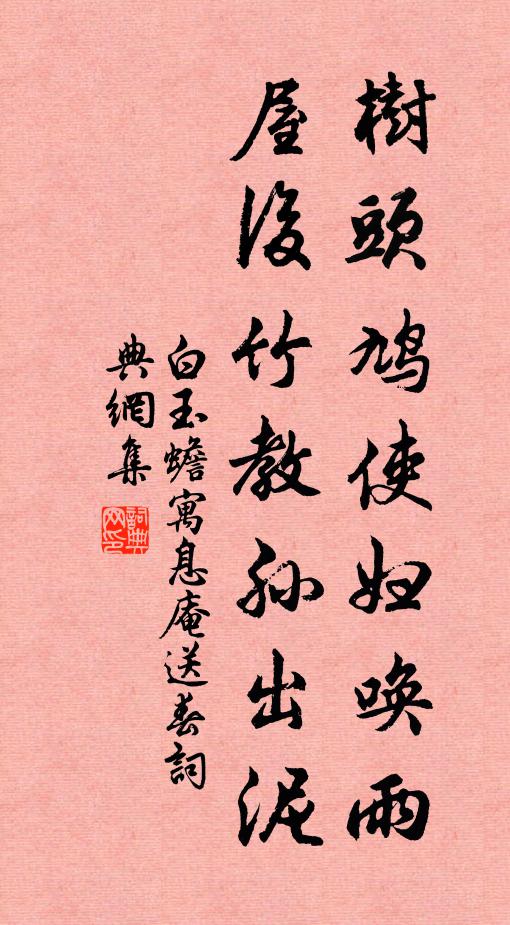 樹頭鳩使妇唤雨
屋後竹教孙出泥
白玉蟾寓息庵送春詞
典網集
詞典网印